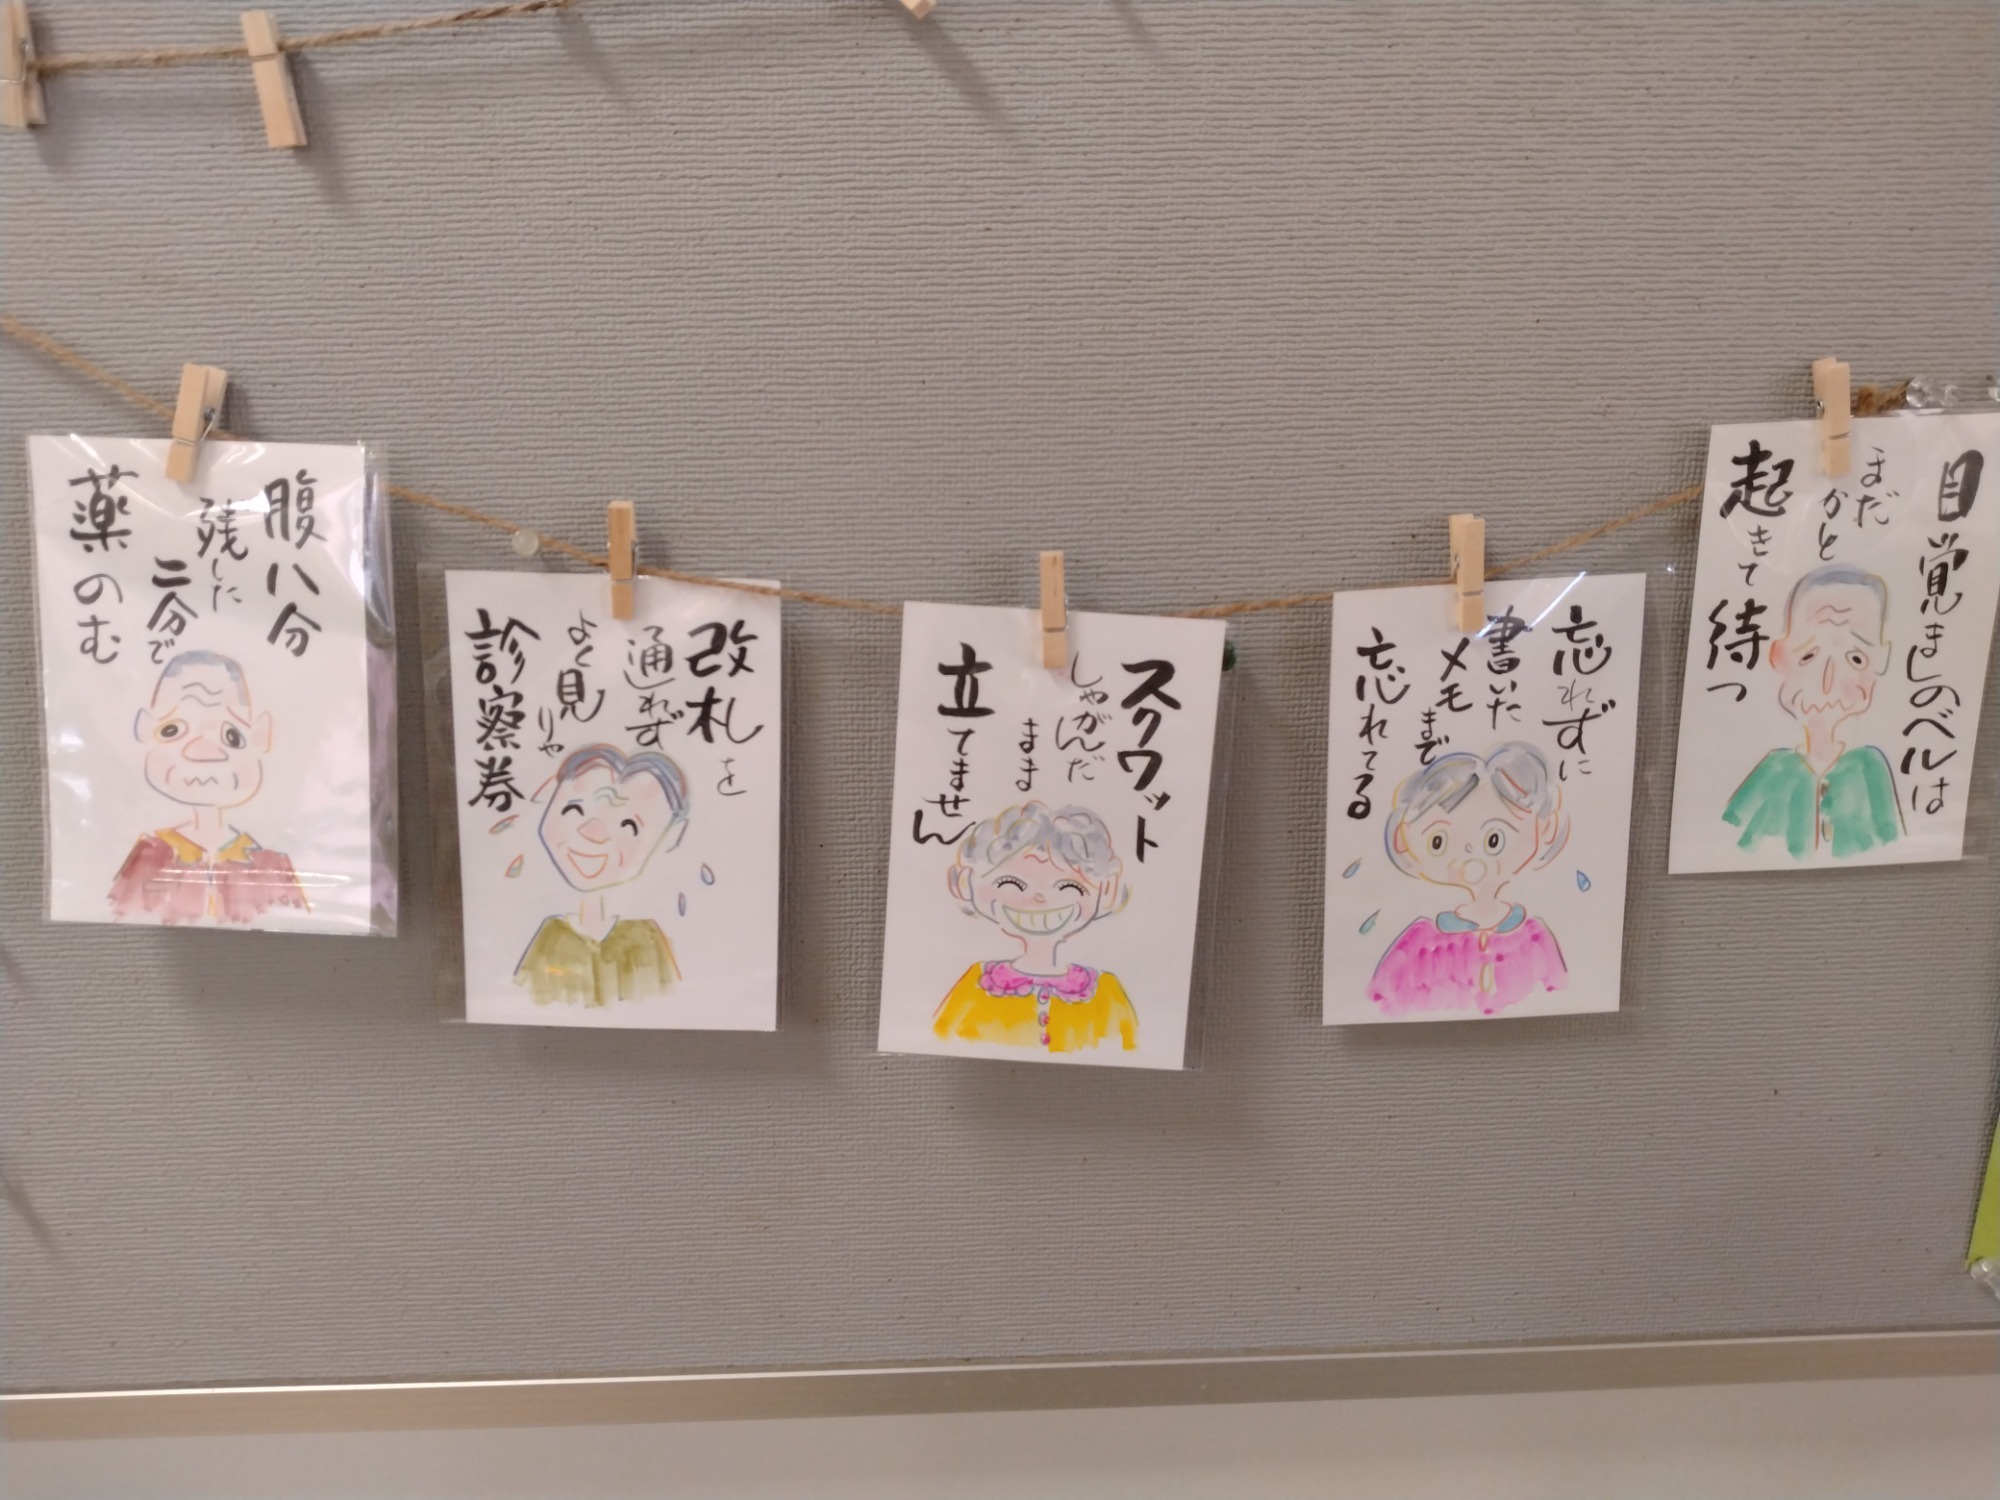 腹八分
残した
二分で
薬のむ
改札を
通れず
よく見
りゃ
診察券
スクワット
しゃがんだ
まま
立てません
忘れずに
書いた
メモ
まで
忘れてる
目覚ましのベルは
まだ
かと
起きて待つ